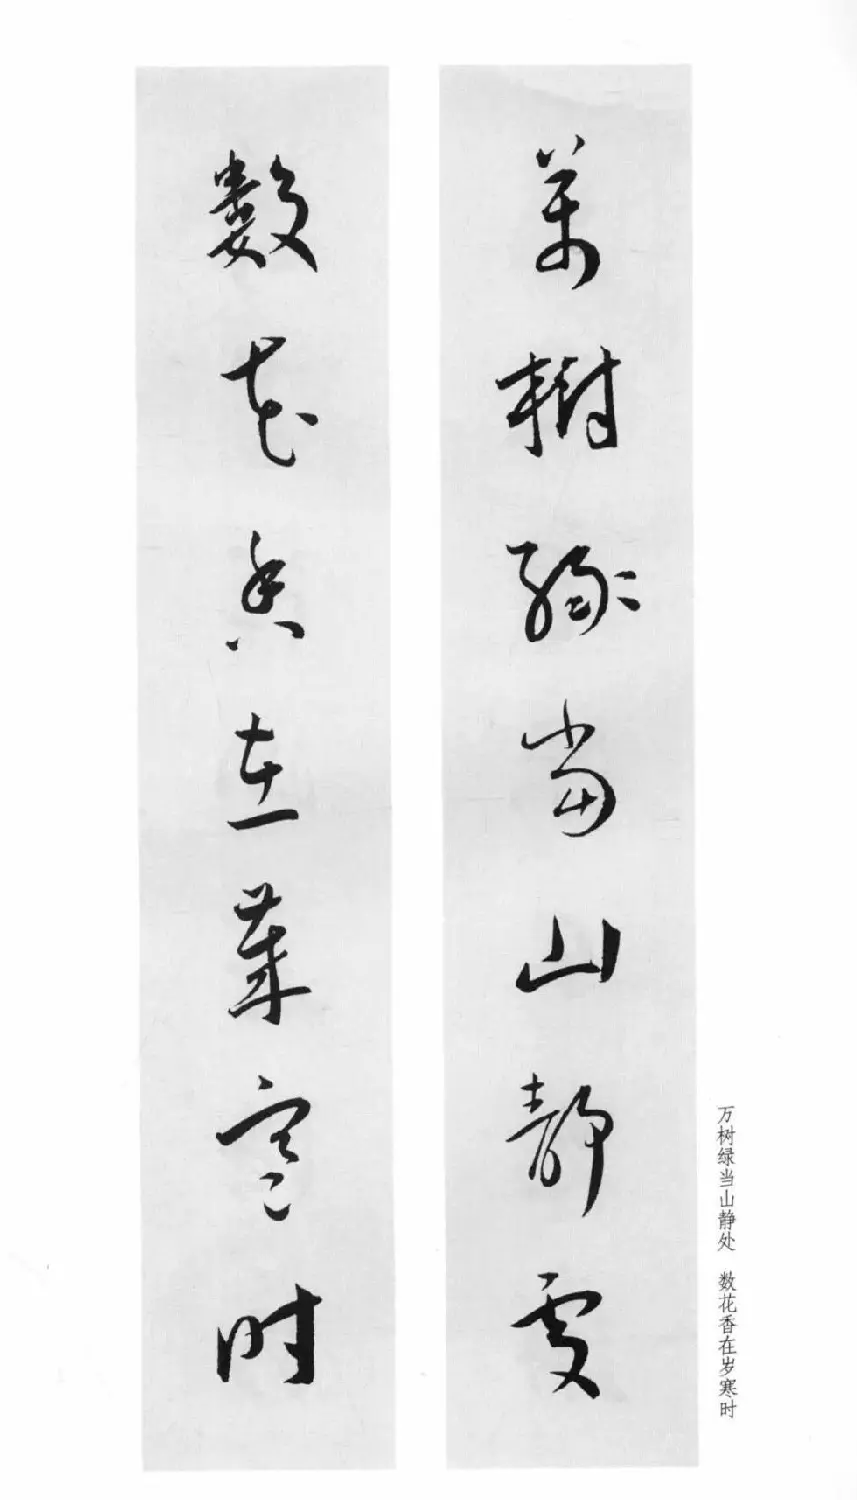 萬樹緑當山静處
数花香在歲寒時
万树绿当山静处　数花香在岁寒时